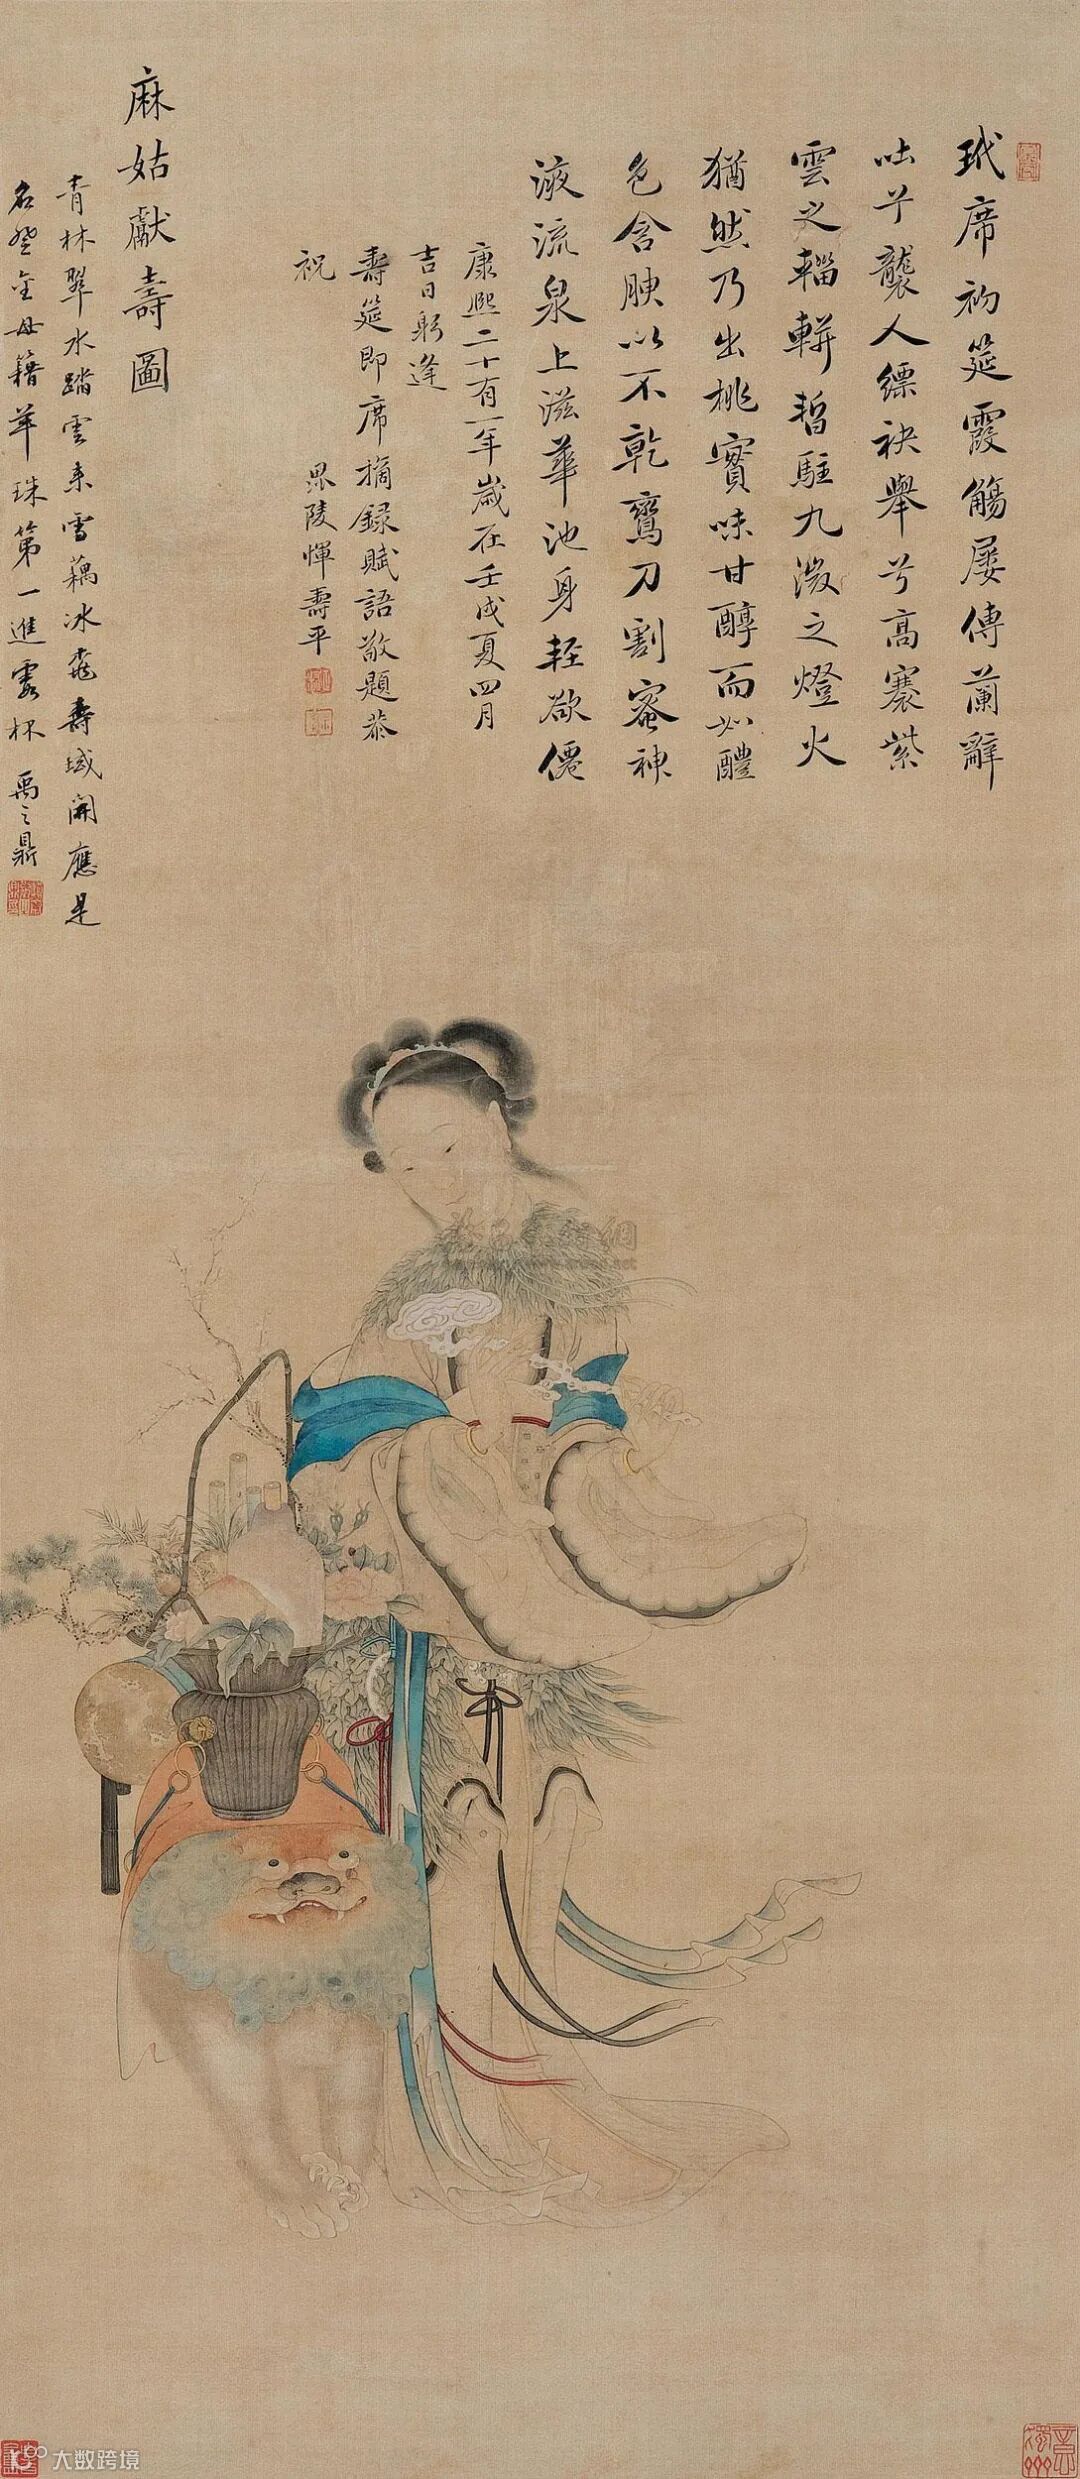 玳席初筵霞觴屡傳蘭辭
吐兮襲人縹袂舉兮高褰紫
雲之輜軿暫駐九微之燈火
猶然乃出桃實味甘醇而如醴
色含腴以不乾鸞刀割蜜神
液流泉上滋華池身輕欲僊
康熙二十有一年歲在壬戌夏四月
吉日躬逢
壽筵即席摘錄賦語敬題恭
祝
毘陵惲壽平
麻姑獻壽圖
青林翠水踏雲來雪藕冰桃壽域開應是
名登金母籍年珠第一進霞杯 禹之鼎
大数跨境